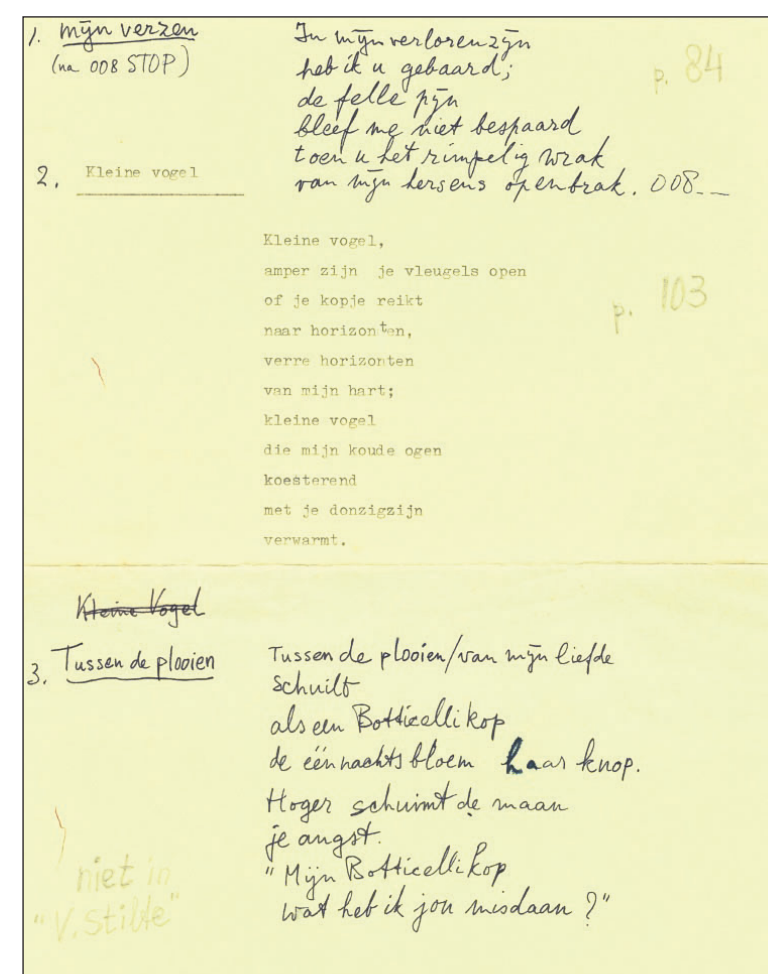 1. mijn verzen
(na 008 STOP)
In mijn verloren zijn
heb ik u gebaard;
de felle pijn
bleef me niet bespaard
toen u het rimpelig wrak
van mijn hersens openbrak. 008__
p. 84
2. Kleine vogel
Kleine vogel,
amper zijn je vleugels open
of je kopje reikt
naar horizonten,
verre horizonten
van mijn hart;
kleine vogel
die mijn koude ogen
koesterend
met je donzigzijn
verwarmt.
p. 103
Kleine Vogel
3. Tussen de plooien
Tussen de plooien/van mijn liefde
schuilt
als een Botticelli kop
de éénnachtsbloem haar knop.
Hoger schuimt de maan
je angst.
"Mijn Botticelli kop
wat heb ik jou misdaan?"
niet in
"V. Stilte"